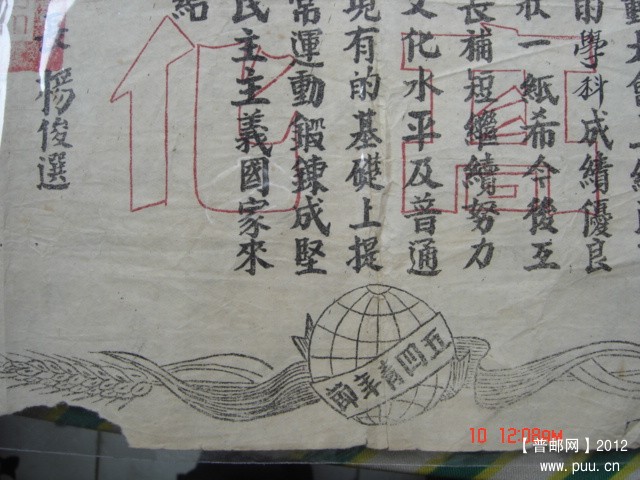 的學科成績優良
狀一紙希今後互
長補短繼續努力
文化水平及普通
現有的基礎上提
常運動鍛鍊成堅
民主主義國家來
給
楊俊選
化
五四青年節
10 12:08AM
【普邮网】2012
www.puu.cn